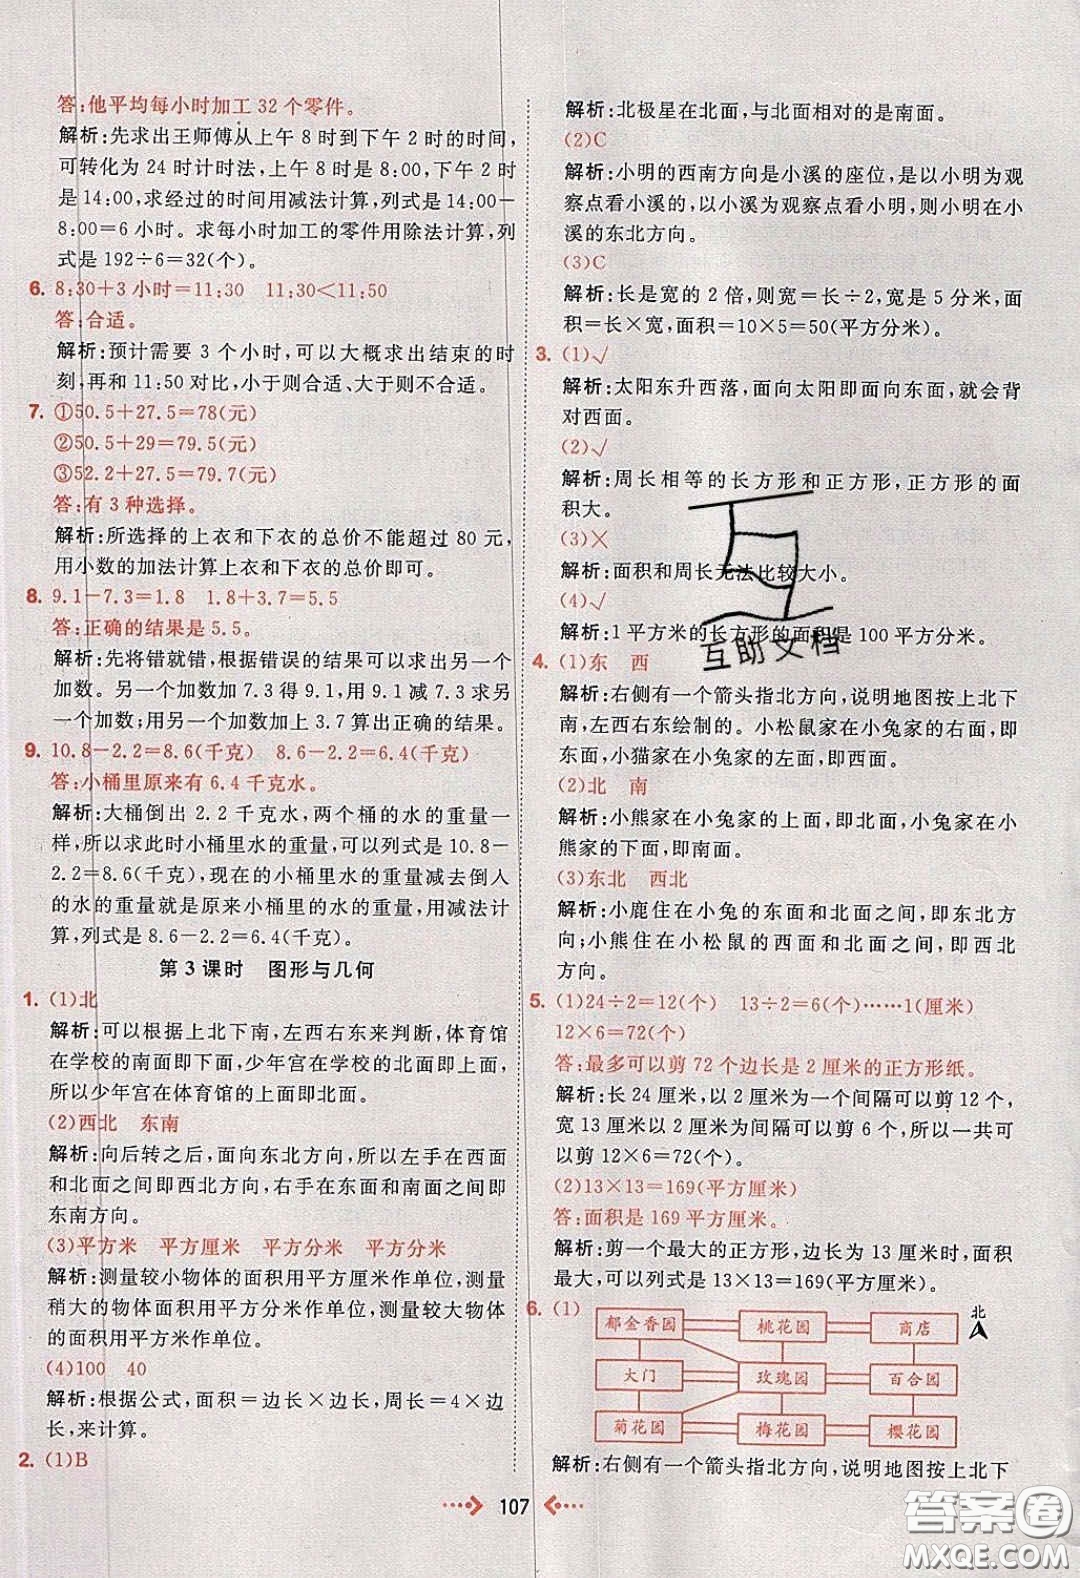 答:他平均每小时加工 32 个零件。
解析:先求出王师傅从上午 8 时到下午 2 时的时间,
可转化为 24 时计时法,上午 8 时是 8:00,下午 2 时
是 14:00,求经过的时间用减法计算,列式是 14:00-
8:00=6 小时。求每小时加工的零件用除法计算,列
式是 192÷6=32(个)。
6. 8:30+3 小时=11:30 11:30<11:50
答:合适。
解析:预计需要 3 个小时,可以大概求出结束的时
刻,再和 11:50 对比,小于则合适、大于则不合适。
7. ①50.5+27.5=78(元)
②50.5+29=79.5(元)
③52.2+27.5=79.7(元)
答:有 3 种选择。
解析:所选择的上衣和下衣的总价不能超过 80 元,
用小数的加法计算上衣和下衣的总价即可。
8. 9.1-7.3=1.8 1.8+3.7=5.5
答:正确的结果是 5.5。
解析:先将错就错,根据错误的结果可以求出另一个
加数。另一个加数加 7.3 得 9.1,用 9.1 减 7.3 求另
一个加数;用另一个加数加上 3.7 算出正确的结果。
9. 10.8-2.2=8.6(千克) 8.6-2.2=6.4(千克)
答:小桶里原来有 6.4 千克水。
解析:大桶倒出 2.2 千克水,两个桶的水的重量一
样,所以求此时小桶里水的重量,可以列式是 10.8-
2.2=8.6(千克),现在的小桶里水的重量减去倒人
的水的重量就是原来小桶里的水的重量,用减法计
算,列式是 8.6-2.2=6.4(千克)。
第 3 课时 图形与几何
1. (1)北
解析:可以根据上北下南,左西右东来判断,体育馆
在学校的南面即下面,少年宫在学校的北面即上面,
所以少年宫在体育馆的上面即北面。
(2)西北 东南
解析:向后转之后,面向东北方向,所以左手在西面
和北面之间即西北方向,右手在东面和南面之间即
东南方向。
(3)平方米 平方厘米 平方分米 平方分米
解析:测量较小物体的面积用平方厘米作单位,测量
稍大的物体面积用平方分米作单位,测量较大物体
的面积用平方米作单位。
(4)100 40
解析:根据公式,面积=边长×边长,周长=4×边
长,来计算。
2. (1)B
解析:北极星在北面,与北面相对的是南面。
(2)C
解析:小明的西南方向是小溪的座位,是以小明为观
察点看小溪的,以小溪为观察点看小明,则小明在小
溪的东北方向。
(3)C
解析:长是宽的 2 倍,则宽=长÷2,宽是 5 分米,面
积=长×宽,面积=10×5=50(平方分米)。
3. (1)√
解析:太阳东升西落,面向太阳即面向东面,就会背
对西面。
(2)√
解析:周长相等的长方形和正方形,正方形的面
积大。
(3)×
解析:面积和周长无法比较大小。
(4)√
解析:1 平方米的长方形的面积是 100 平方分米。
4. (1)东 西
解析:右侧有一个箭头指北方向,说明地图按上北下
南,左西右东绘制的。小松鼠家在小兔家的右面,即
东面,小猫家在小兔家的左面,即西面。
(2)北 南
解析:小熊家在小兔家的上面,即北面,小兔家在小
熊家的下面,即南面。
(3)东北 西北
解析:小鹿住在小兔的东面和北面之间,即东北方
向;小熊住在小松鼠的西面和北面之间,即西北
方向。
5. (1)24÷2=12(个) 13÷2=6(个)……1(厘米)
12×6=72(个)
答:最多可以剪 72 个边长是 2 厘米的正方形纸。
解析:长 24 厘米以 2 厘米为一个间隔可以剪 12 个,
宽 13 厘米以 2 厘米为间隔可以剪 6 个,所以一共可
以剪 12×6=72(个)。
(2)13×13=169(平方厘米)
答:面积是 169 平方厘米。
解析:剪一个最大的正方形,边长为 13 厘米时,面积
最大,可以列式是 13×13=169(平方厘米)。
6. (1)
北
郁金香园 桃花园 商店
大门 玫瑰园 百合园
菊花园 梅花园 樱花园
解析:右侧有一个箭头指北方向,说明地图按上北下
107
互助文档
答案圈
MXQE.COM